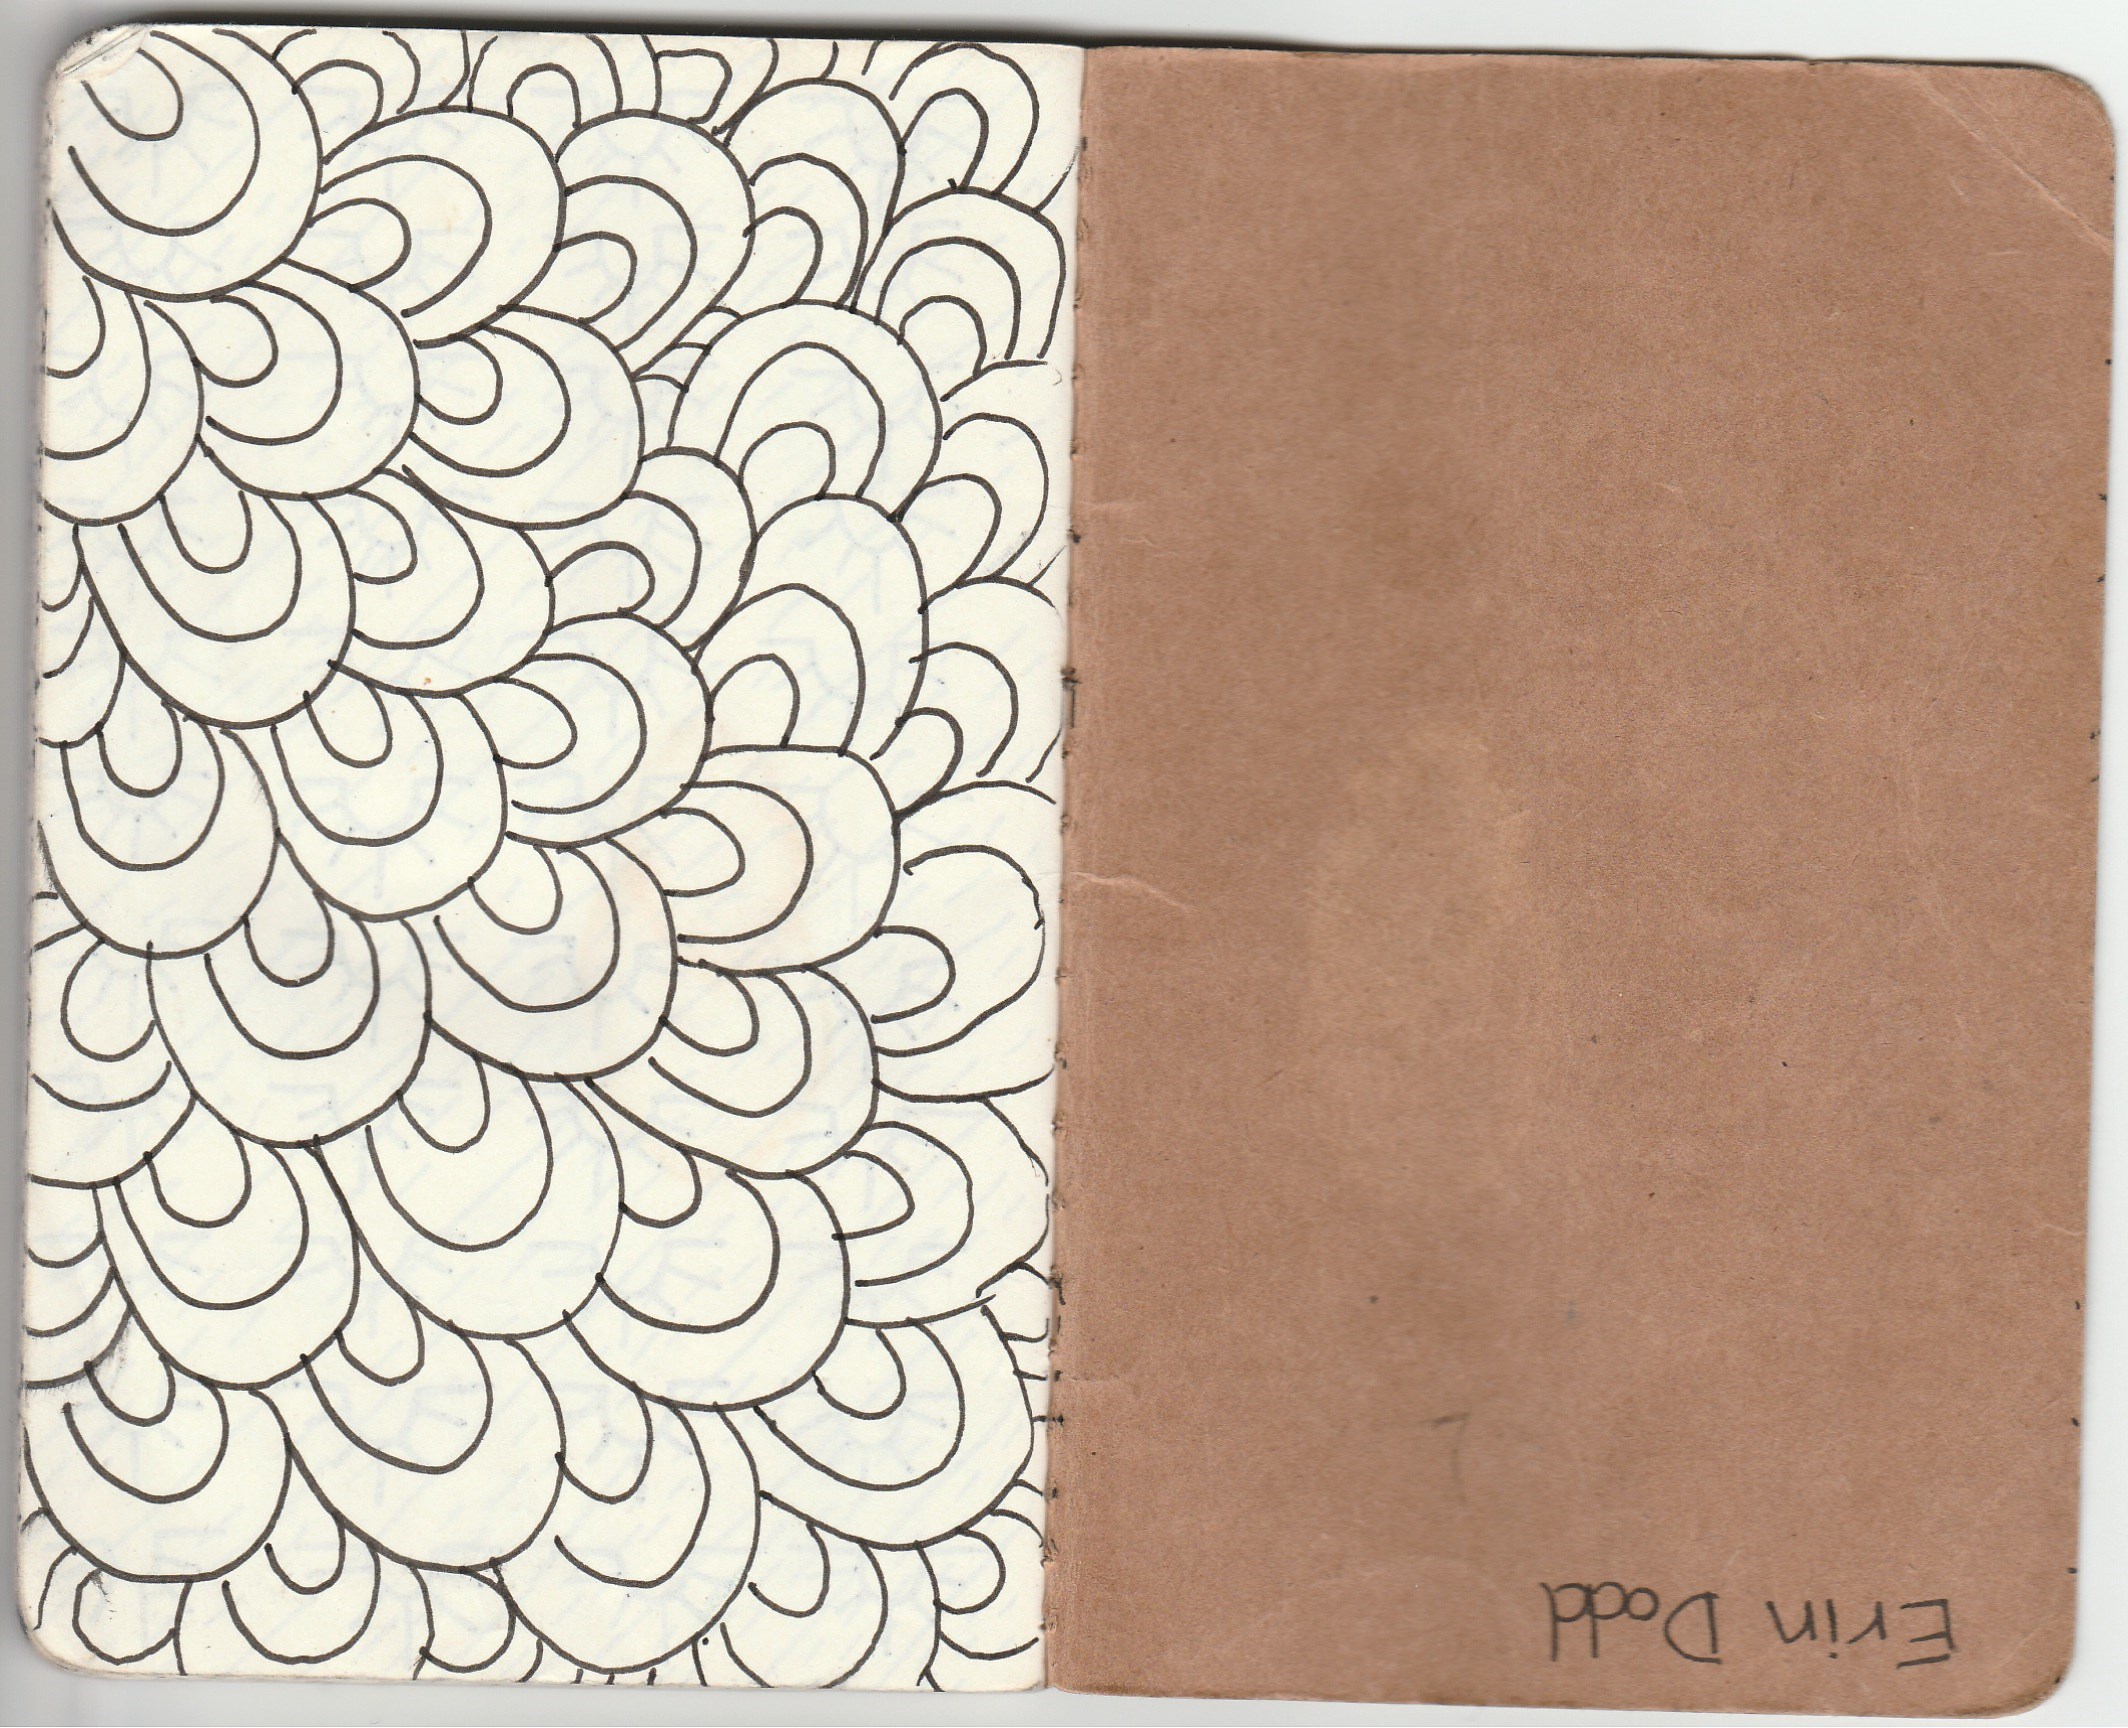 Erin Dodd